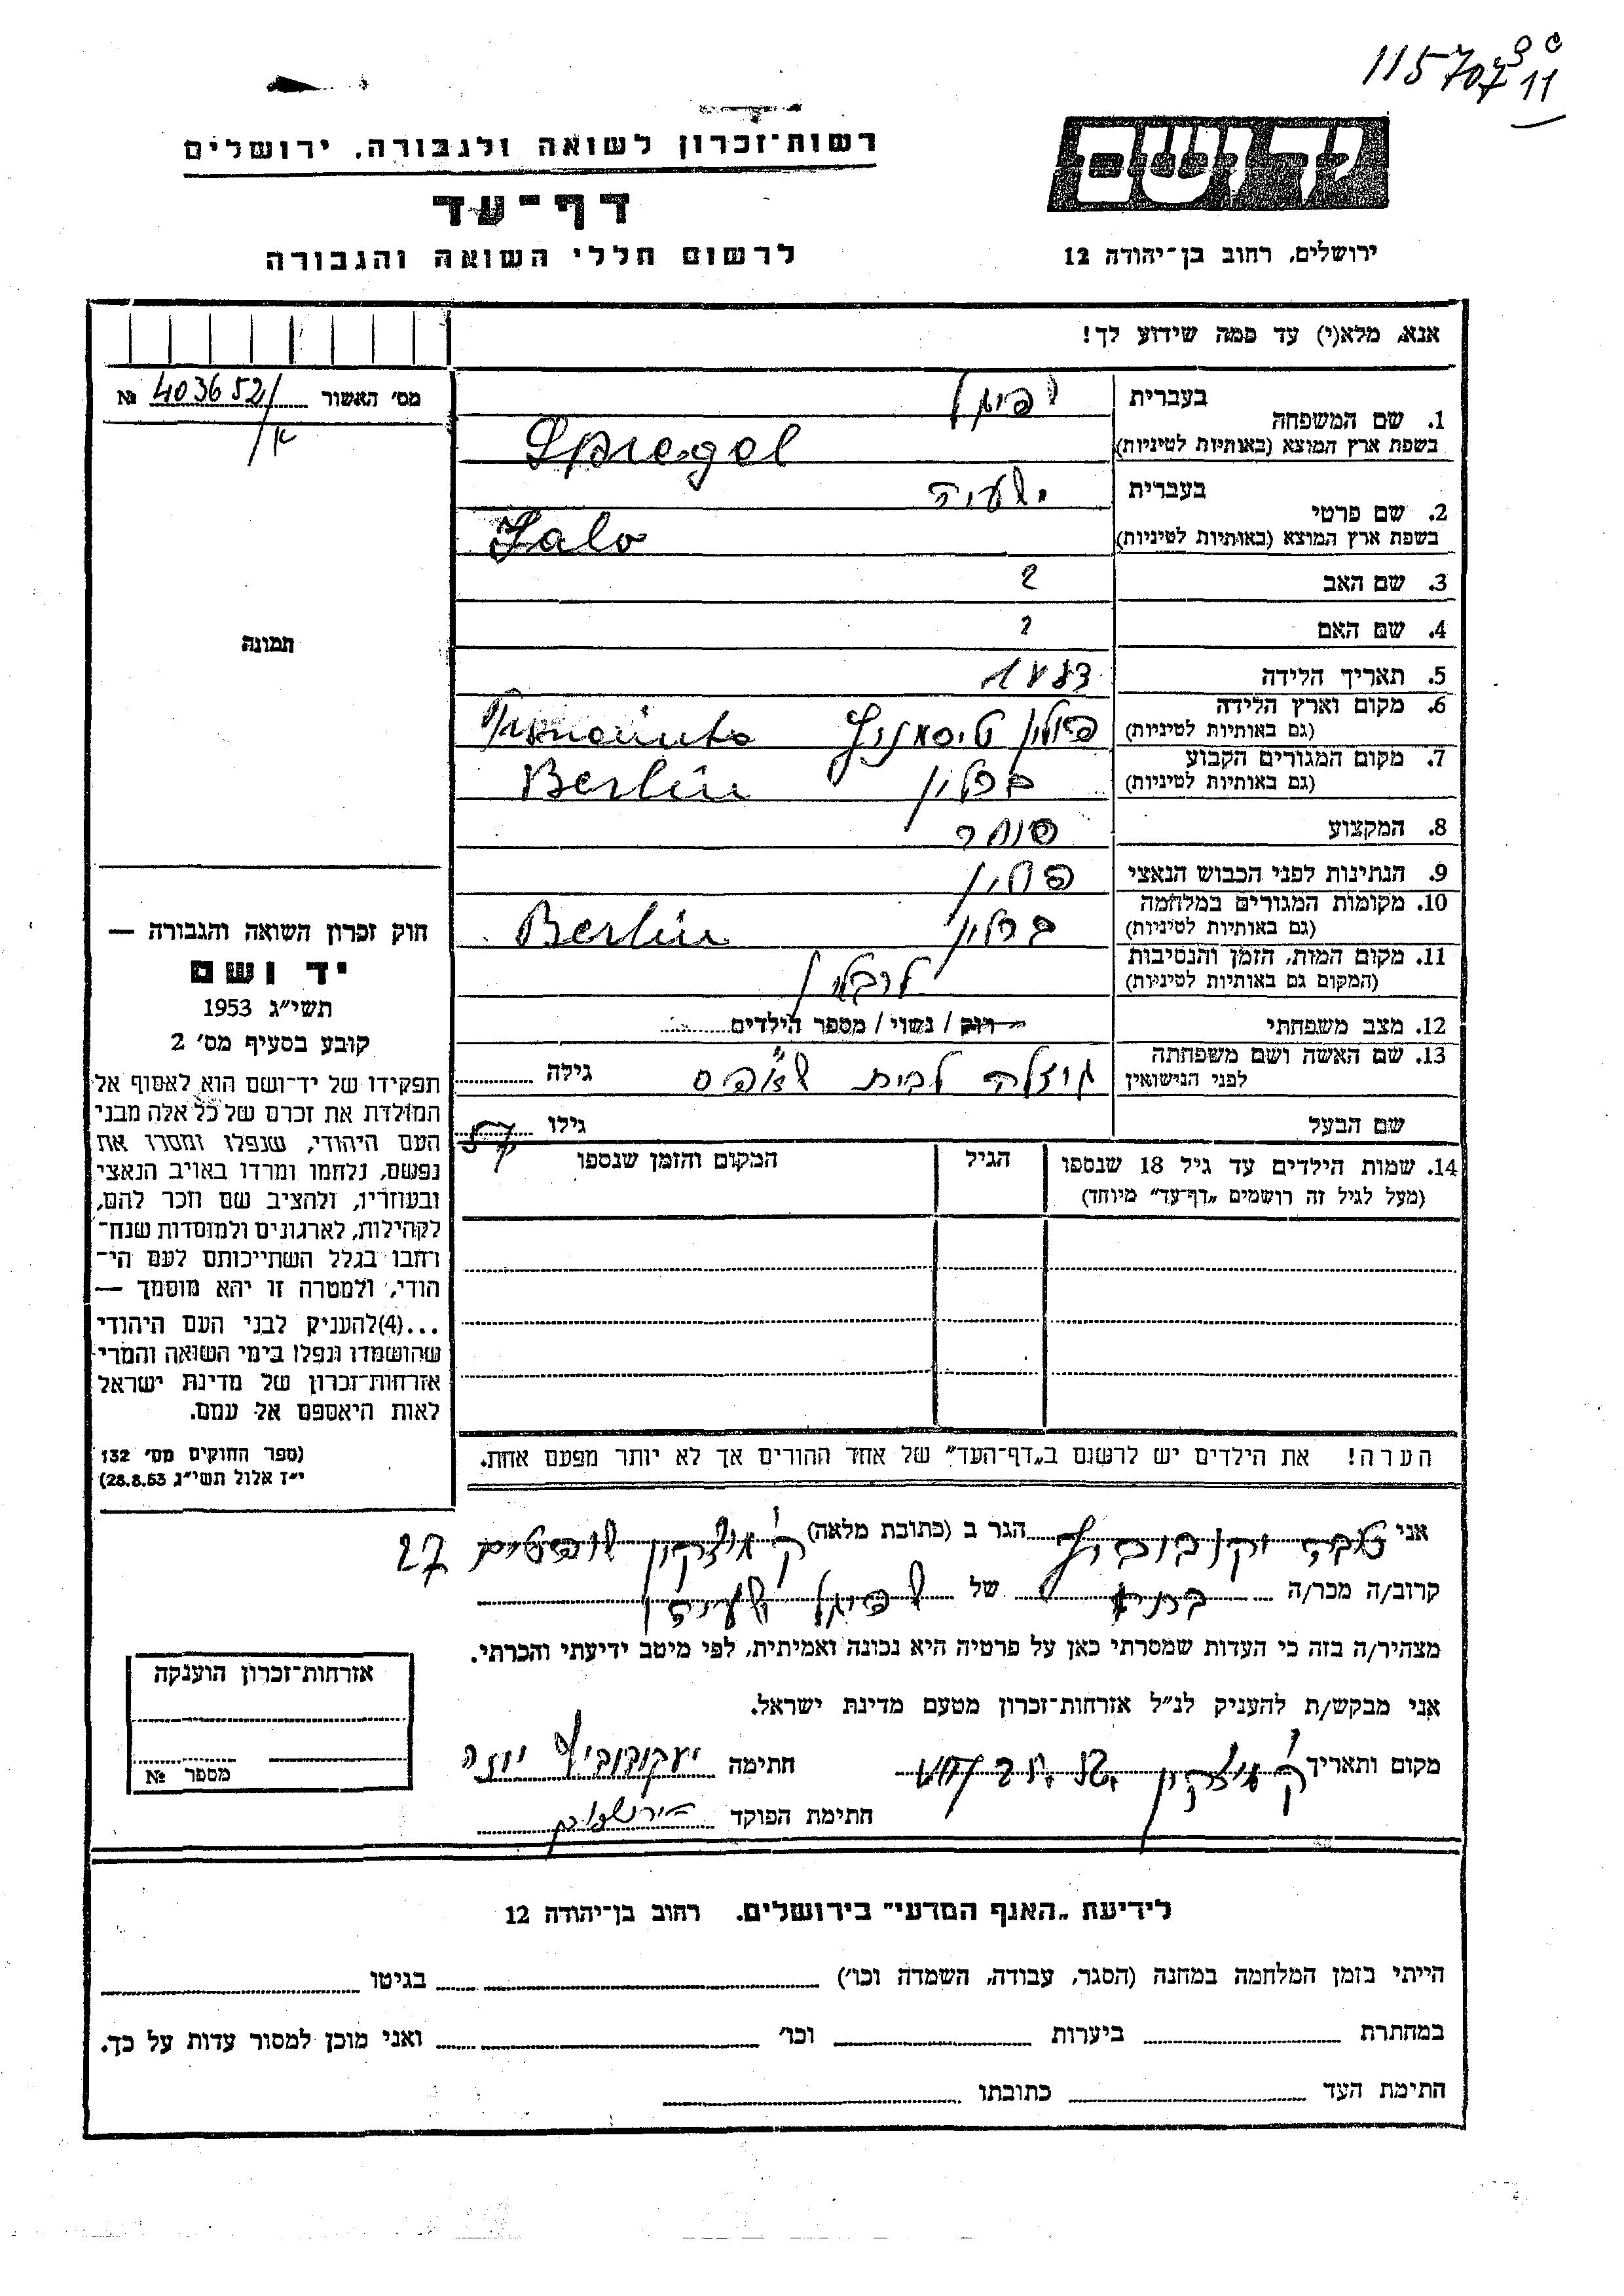 115707
11
רשות־זכרון לשואה ולגבורה, ירושלים
דף־עד
לרשום חללי השואה והגבורה
יד ושם
ירושלים, רחוב בן־יהודה 12
אנא, מלא(י) עד כמה שידוע לך!
מס' האשור 403652/ №
א
תמונה
1. שם המשפחה
בעברית שפיגל
בשפת ארץ המוצא (באותיות לטיניות) Spiegel
2. שם פרטי
בעברית ישעיה
בשפת ארץ המוצא (באותיות לטיניות) Salo
3. שם האב ?
4. שם האם ?
5. תאריך הלידה
6. מקום וארץ הלידה פולין
(גם באותיות לטיניות)
7. מקום המגורים הקבוע ברלין Berlin
(גם באותיות לטיניות)
8. המקצוע סוחר
9. הנתינות לפני הכבוש הנאצי פולין
10. מקומות המגורים במלחמה ברלין Berlin
(גם באותיות לטיניות)
11. מקום המות, הזמן והנסיבות לובלין
(המקום גם באותיות לטיניות)
12. מצב משפחתי רוק / נשוי / מספר הילדים
13. שם האשה ושם משפחתה לבית גילה
לפני הנישואין
שם הבעל גילו 57
14. שמות הילדים עד גיל 18 שנספו הגיל המקום והזמן שנספו
(מעל לגיל זה רושמים „דף־עד” מיוחד)
הערה! את הילדים יש לרשום ב„דף־העד” של אחד ההורים אך לא יותר מפעם אחת.
חוק זכרון השואה והגבורה —
יד ושם
תשי״ג 1953
קובע בסעיף מס' 2
תפקידו של יד־ושם הוא לאסוף אל
המולדת את זכרם של כל אלה מבני
העם היהודי, שנפלו ומסרו את
נפשם, נלחמו ומרדו באויב הנאצי
ובעוזריו, ולהציב שם וזכר להם,
לקהילות, לארגונים ולמוסדות שנח־
רחבו בגלל השתייכותם לעם הי־
הודי, ולמטרה זו יהא מוסמך —
...(4)להעניק לבני העם היהודי
שהושמדו ונפלו בימי השואה והמרי
אזרחות־זכרון של מדינת ישראל
לאות היאספם אל עמם.
(ספר החוקים מס' 132
י״ז אלול תשי״ג 28.8.53)
אני יעקובוביץ הגר ב (כתובת מלאה) ק מוצקין שופטים 27
קרוב/ה מכר/ה של שפיגל ישעיהו
מצהיר/ה בזה כי העדות שמסרתי כאן על פרטיה היא נכונה ואמיתית, לפי מיטב ידיעתי והכרתי.
אני מבקש/ת להעניק לנ״ל אזרחות־זכרון מטעם מדינת ישראל.
מקום ותאריך ק מוצקין חתימה יעקובוביץ
חתימת הפוקד
אזרחות־זכרון הוענקה
מספר №
לידיעת „האגף המדעי” בירושלים. רחוב בן־יהודה 12
הייתי בזמן המלחמה במחנה (הסגר, עבודה, השמדה וכו') בגיטו
במחתרת ביערות וכו' ואני מוכן למסור עדות על כך.
חתימת העד כתובתו